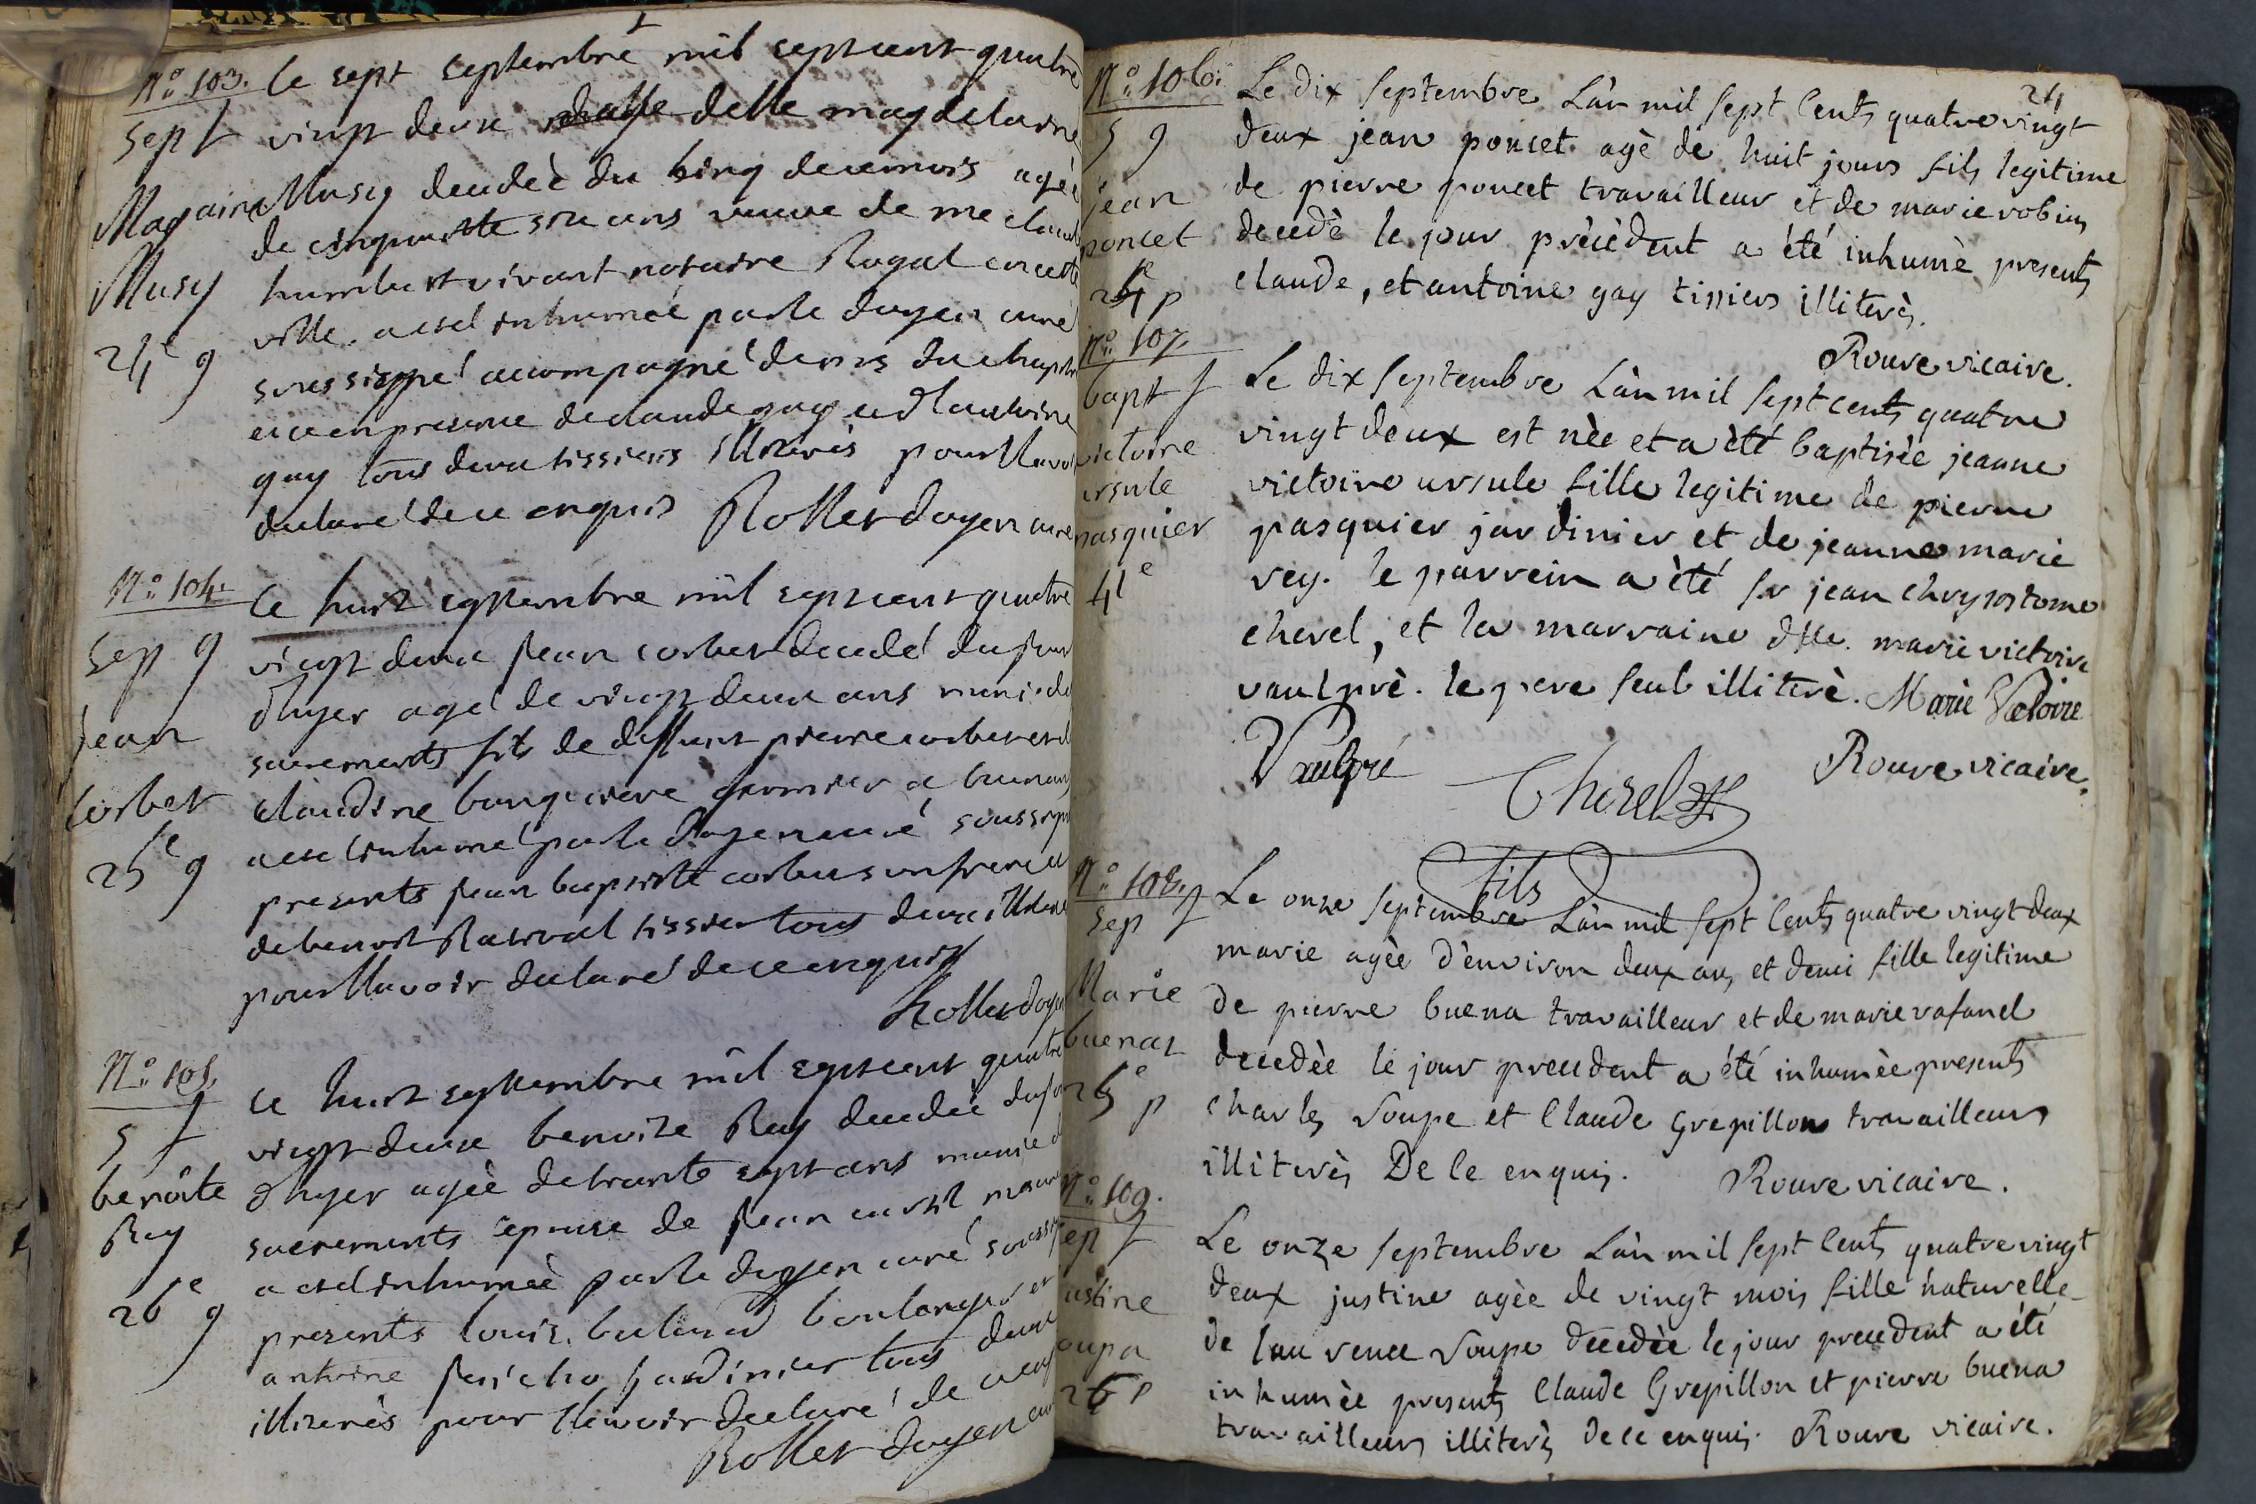 N.º 103. le sept septembre mil sept cent quatre
sep f vingt deux delle magdelaine
Magdaine Musy decedeè du cinq de ce mois ageè
de cinquante six ans veuve de me claude
Musy humbert vivant notaire Royal en cette
ville a eté inhumeé par le doyen curé
24e g soussigné accompagné de mrs du chapitre
et ce en presence de claude gay et d'antoine
gay tous deux tissiers illiterès pour l'avoir
declaré de ce enquis Roller doyen curé
N.º 104.
le huit septembre mil sept cent quatre
sep g vingt deux jean corbet decedé du jour
d'hyer agé de vingt deux ans muni des
jean sacrements fils de deffunt pierre corbet et de
corbet claudine granger a
25e g a eté inhumé par le doyen curé soussigné
presents jean baptiste corbet son frere et
de benoit tissier tous deux illiterès
pour l'avoir declaré de ce enquis
Roller doyen
N.º 105.
le huit septembre mil sept cent quatre
s f vingt deux benoite Rey decedeè du jour
benoite d'hyer ageè de trente sept ans munie des
Rey sacrements epouse de jean
a eté inhumeè par le doyen curé soussigné
26e g presents louis boulanger et
antoine jardinier tous deux
illiterès pour l'avoir declaré de ce enquis
Roller doyen curé
24
N.º 106. Le dix septembre L'àn mil sept Cents quatre vingt
s g deux jean poncet agè de huit jours fils legitime
jean de pierre poncet travailleur et de marie robin
poncet decedè le jour prècèdent a été inhumè presents
24e p claude, et antoine gay tissiers illiterès.
Rouve vicaire.
N.º 107.
bapt f Le dix septembre L'àn mil sept cents quatre
victoire vingt deux est nèe et a èté baptisèe jeanne
ursule victoire ursule fille legitime de pierre
pasquier pasquier jardinier et de jeanne marie
41e vey. le parrein a èté sr jean chrysostome
cherel, et la marraine dlle. marie victoire
vaulprè. le pere seul illiterè. Marie Victoire
Vaulpré Cherel fils Rouve vicaire.
N.º 108.
sep f Le onze septembre L'àn mil sept Cents quatre vingt deux
marie agèe d'environ deux ans et demi fille legitime
Marie de pierre buena travailleur et de marie rafanel
buenaz decedèe le jour precedent a été inhumèe presents
25e p charles Soupe et Claude Grepillon travailleurs
illiterès De Ce enquis. Rouve vicaire.
N.º 109.
sep f Le onze septembre L'àn mil sept Cents quatre vingt
justine deux justine agèe de vingt mois fille naturelle
soupa de laurence Soupe decedèe le jour precedent a èté
26 p inhumèe presents Claude Grepillon et pierre buena
travailleurs illiterès de ce enquis. Rouve vicaire.